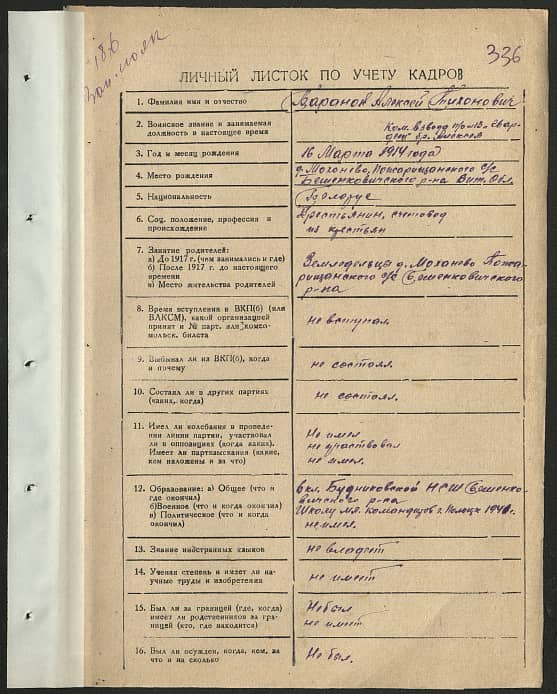 186
336
ЛИЧНЫЙ ЛИСТОК ПО УЧЕТУ КАДРОВ
1. Фамилия имя и отчество
Алексей Тихонович
2. Воинское звание и занимаемая
должность в настоящее время
Ком. взвода
3. Год и месяц рождения
16 Марта 1914 года
4. Место рождения
д. Моханово, Пожарищанского с/с
Бешенковичского р-на Вит. Обл.
5. Национальность
Белорус
6. Соц. положение, профессия и
происхождение
Крестьянин, счетовод
из крестьян
7. Занятие родителей:
а) До 1917 г. (чем занимались и где)
б) После 1917 г. до настоящего
времени
в) Место жительства родителей
Земледельца д. Моханово Пожа-
рищанского с/с Бешенковичского
р-на
8. Время вступления в ВКП(б) (или
ВЛКСМ), какой организацией
принят и № парт. или комсо-
мольск. билета
не вступал.
9. Выбывал ли из ВКП(б), когда
и почему
не состоял.
10. Состоял ли в других партиях
(каких, когда)
не состоял.
11. Имел ли колебания в проведе-
нии линии партии, участвовал
ли в оппозициях (когда каких).
Имеет ли партвзыскания (какие,
кем наложены и за что)
Не имел
не участвовал
не имел.
12. Образование: а) Общее (что и
где окончил)
б) Военное (что и когда окончил)
в) Политическое (что и когда
окончил)
6 кл. Будниковской НСШ Бешенко-
вичского р-на
Школу мл. командиров г. Полоцк 1940г.
не имел.
13. Знание иностранных языков
не владеет
14. Ученая степень и имеет ли на-
учные труды и изобретения
не имеет
15. Был ли за границей (где, когда)
имеет ли родственников за гра-
ницей (кто, где находится)
Не был
не имеет
16. Был ли осужден, когда, кем, за
что и на сколько
Не был.